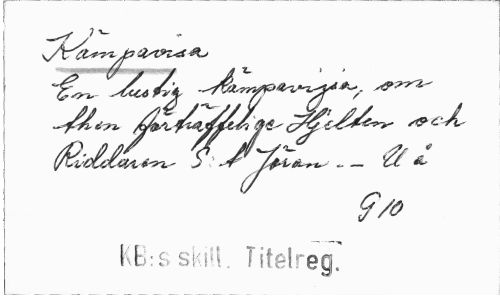 Kämpavisa
En lustig kämpavijsa, om
then förträffelige Hjelten och
Riddaren S:t Jöran. — U å
G 10
KB:s skill. Titelreg.